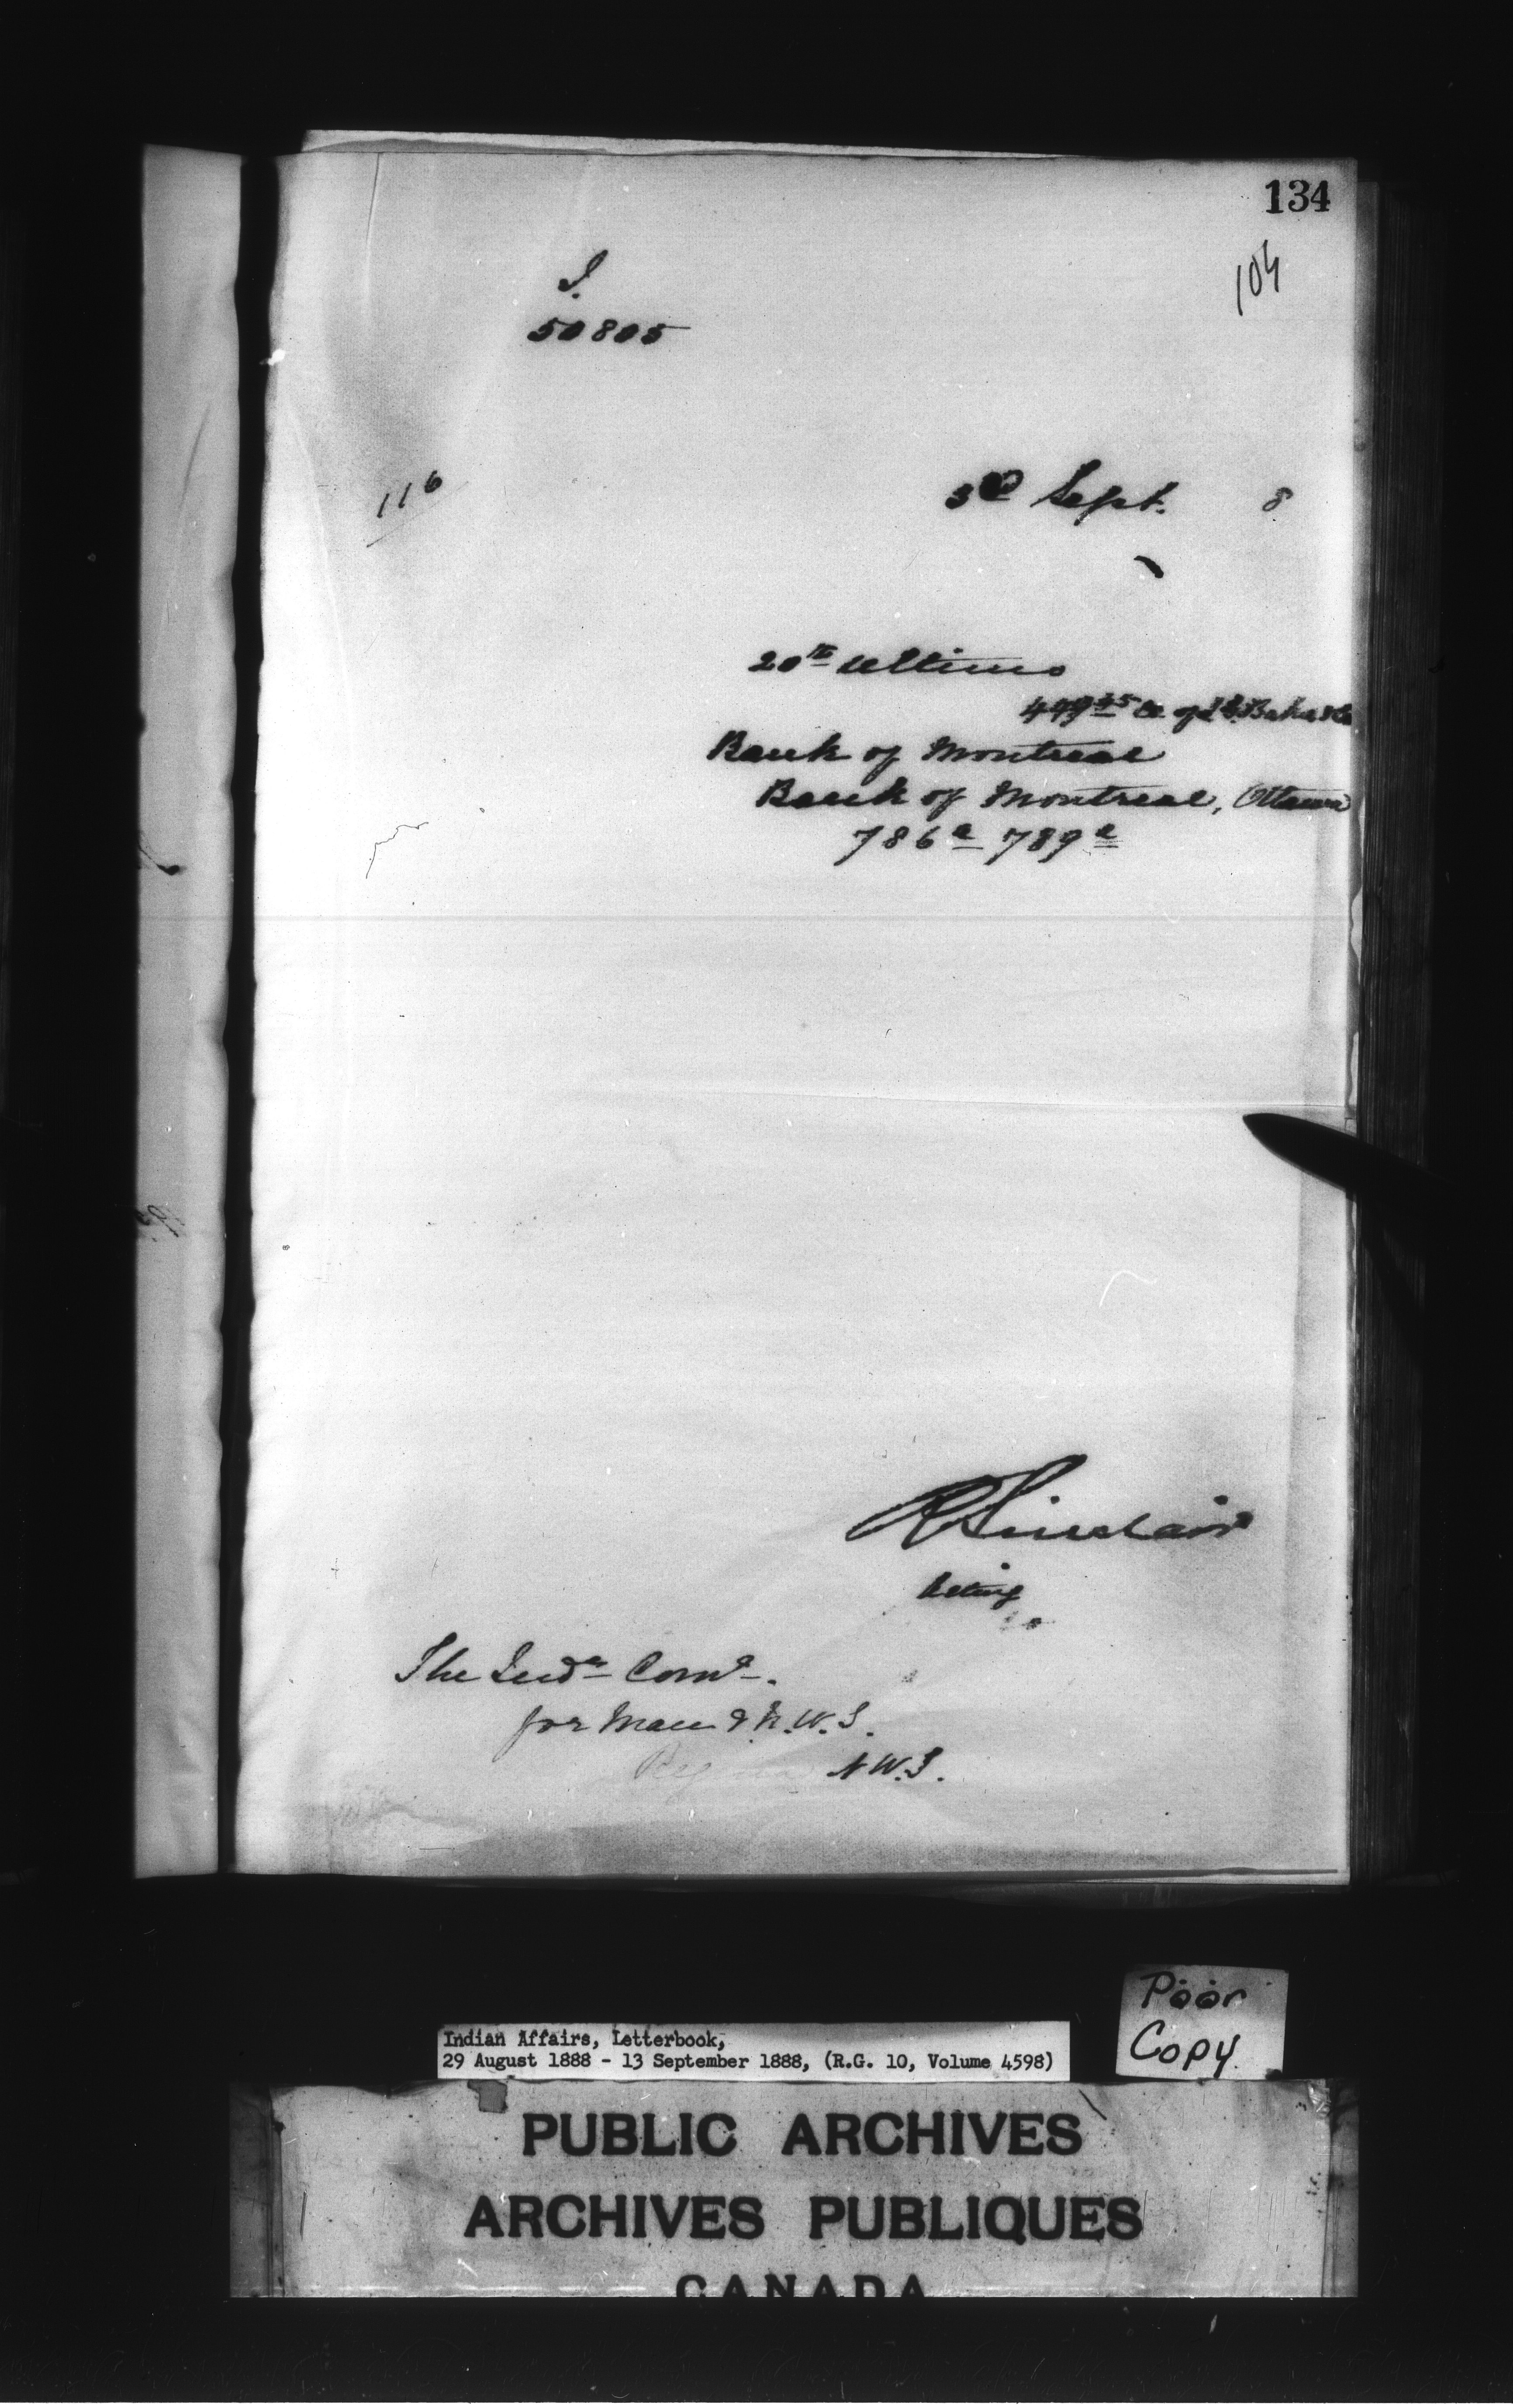 134
104
I.
50805
116
3rd Sept. 8
20th Ultimo
449 45 of I.G. Baker & Co
Bank of Montreal
Bank of Montreal, Ottawa
786a 789a
R Sinclair
Acting
The Indn Comr.
for Man & N.W.T.
Regina N.W.T.
Poor
Copy
Indian Affairs, Letterbook,
29 August 1888 - 13 September 1888, (R.G. 10, Volume 4598)
PUBLIC ARCHIVES
ARCHIVES PUBLIQUES
CANADA